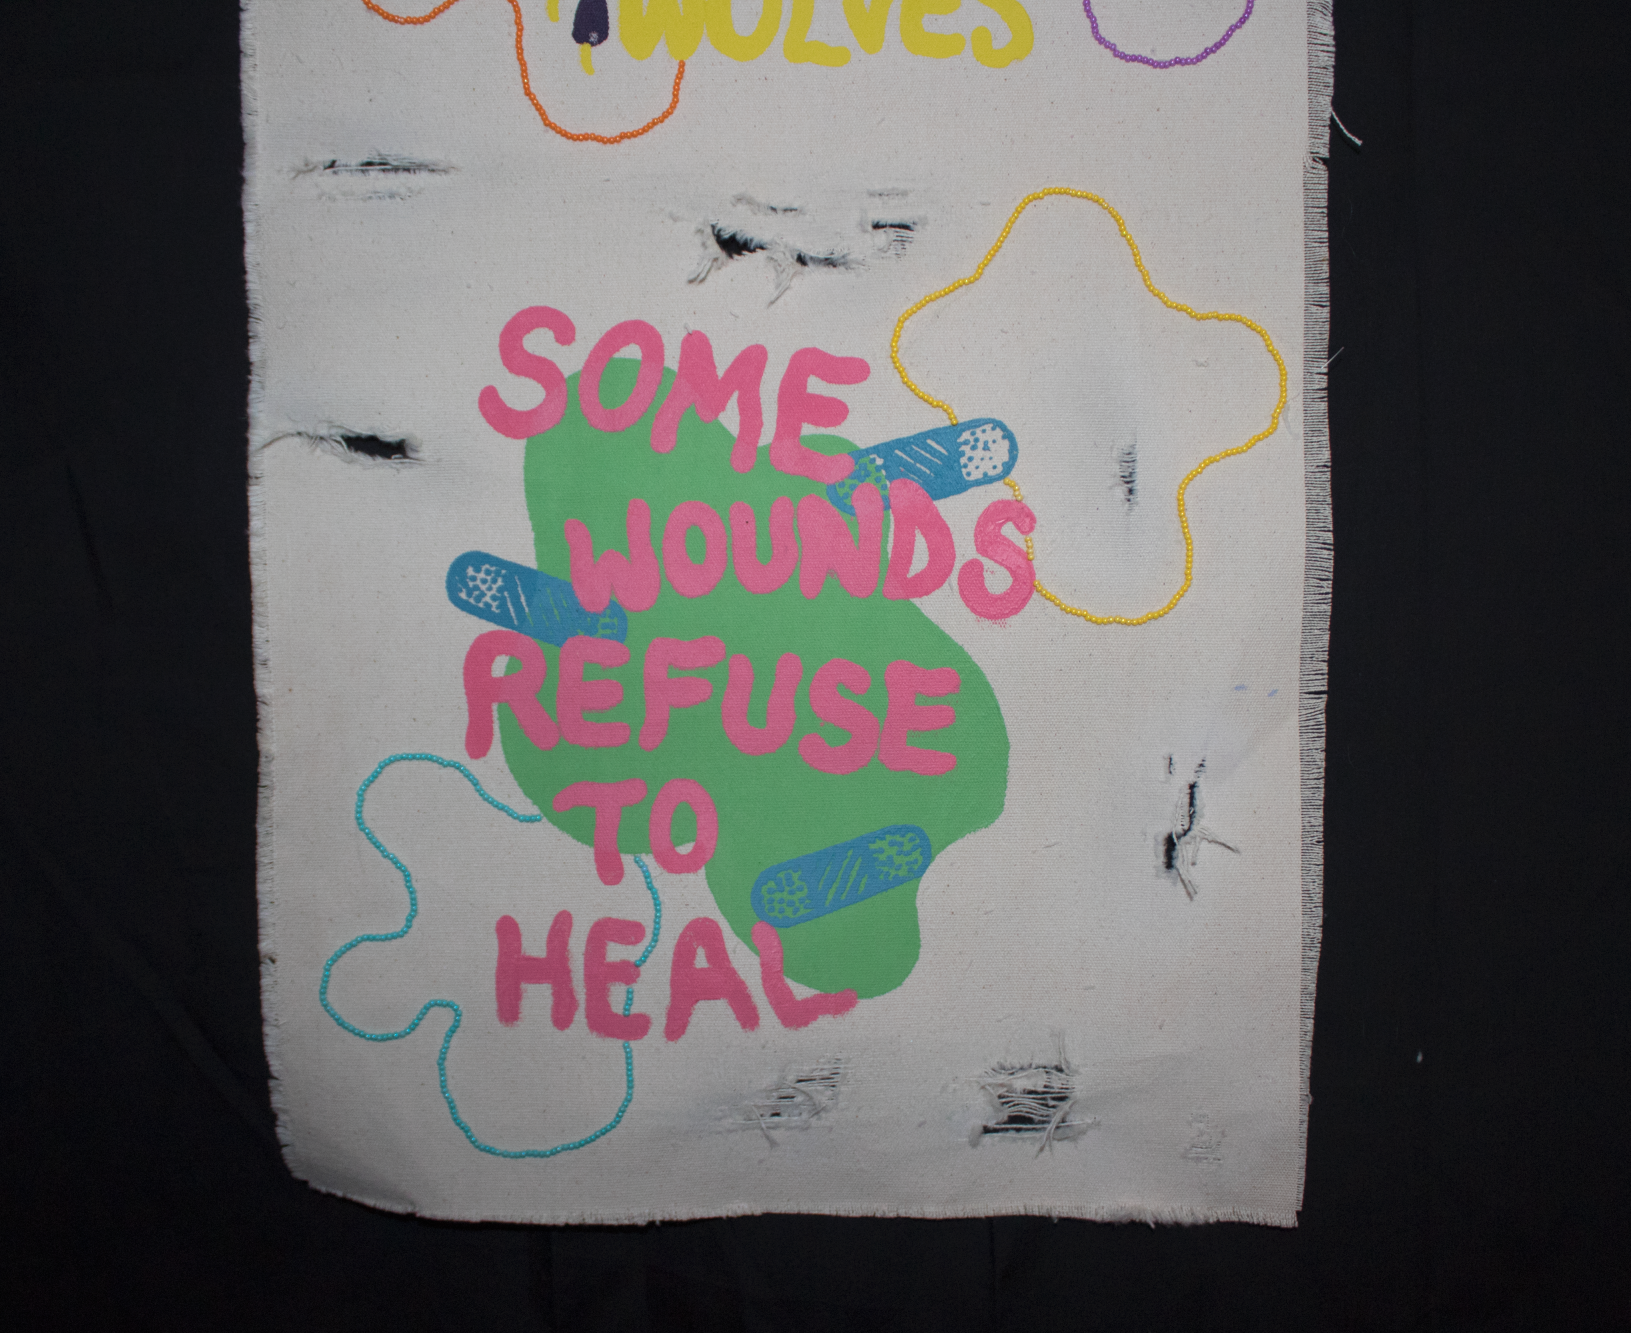 WOLVES
SOME
WOUNDS
REFUSE
TO
HEAL